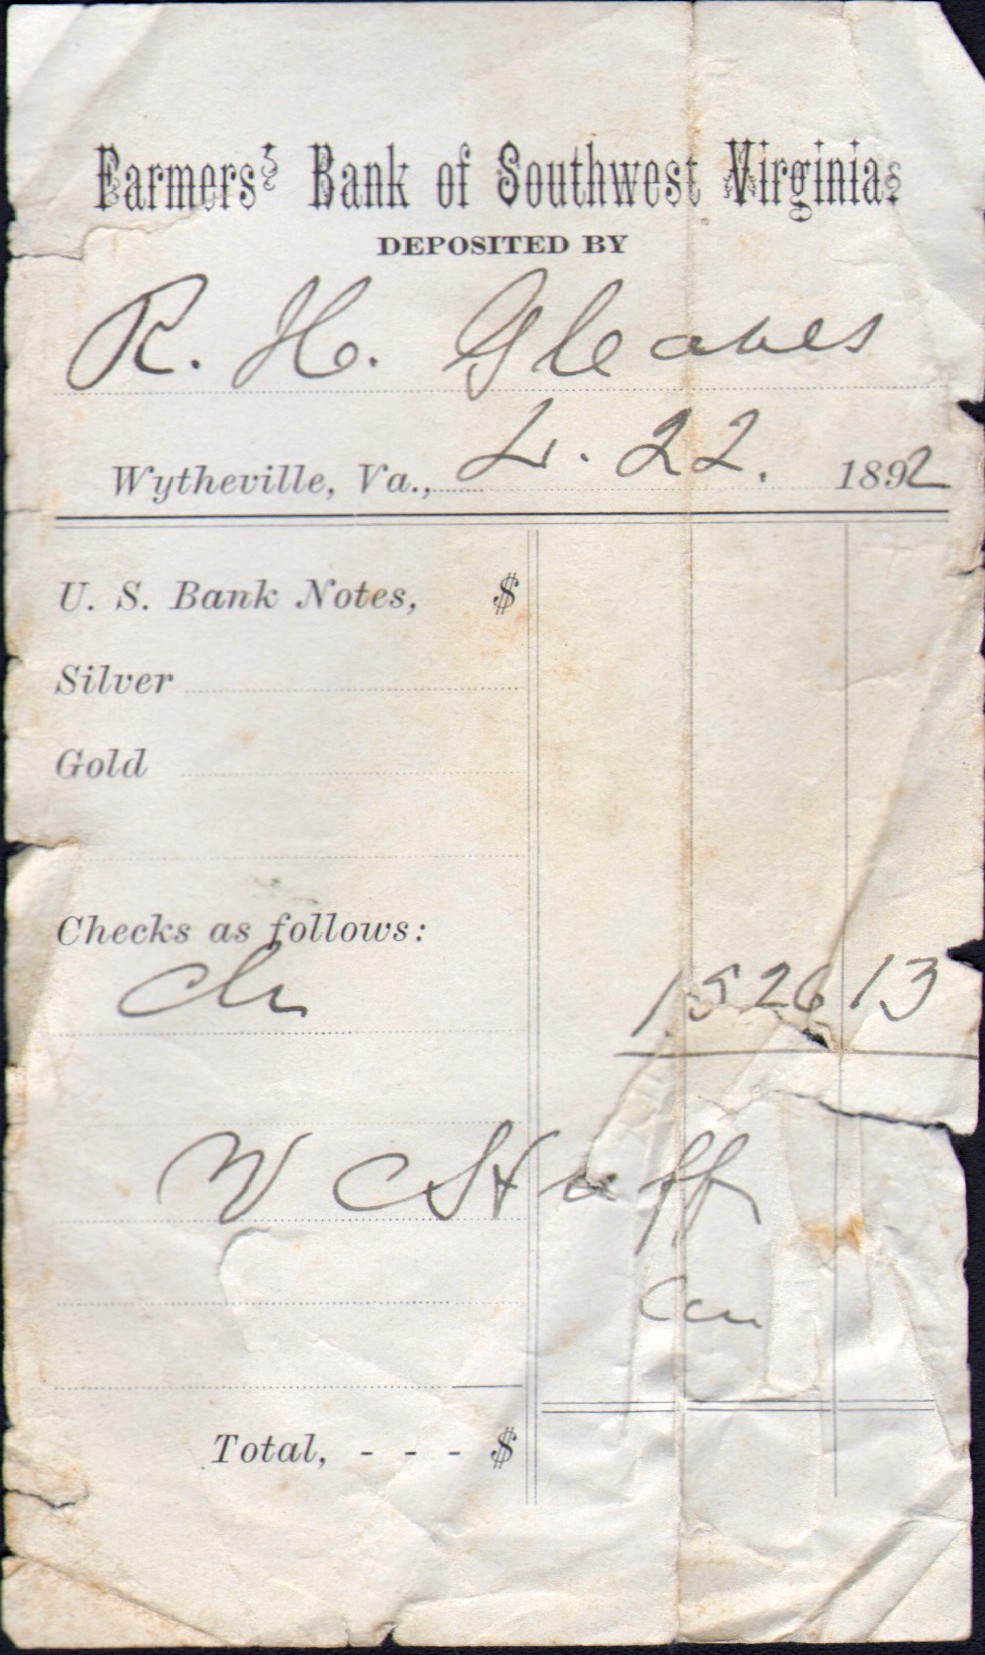 Farmers' Bank of Southwest Virginia.
DEPOSITED BY
R. H. Gleaves
Wytheville, Va., 4. 22. 1892
U. S. Bank Notes, $
Silver
Gold
Checks as follows:
Ch 1526 13
W C St uff
Total, - - - $